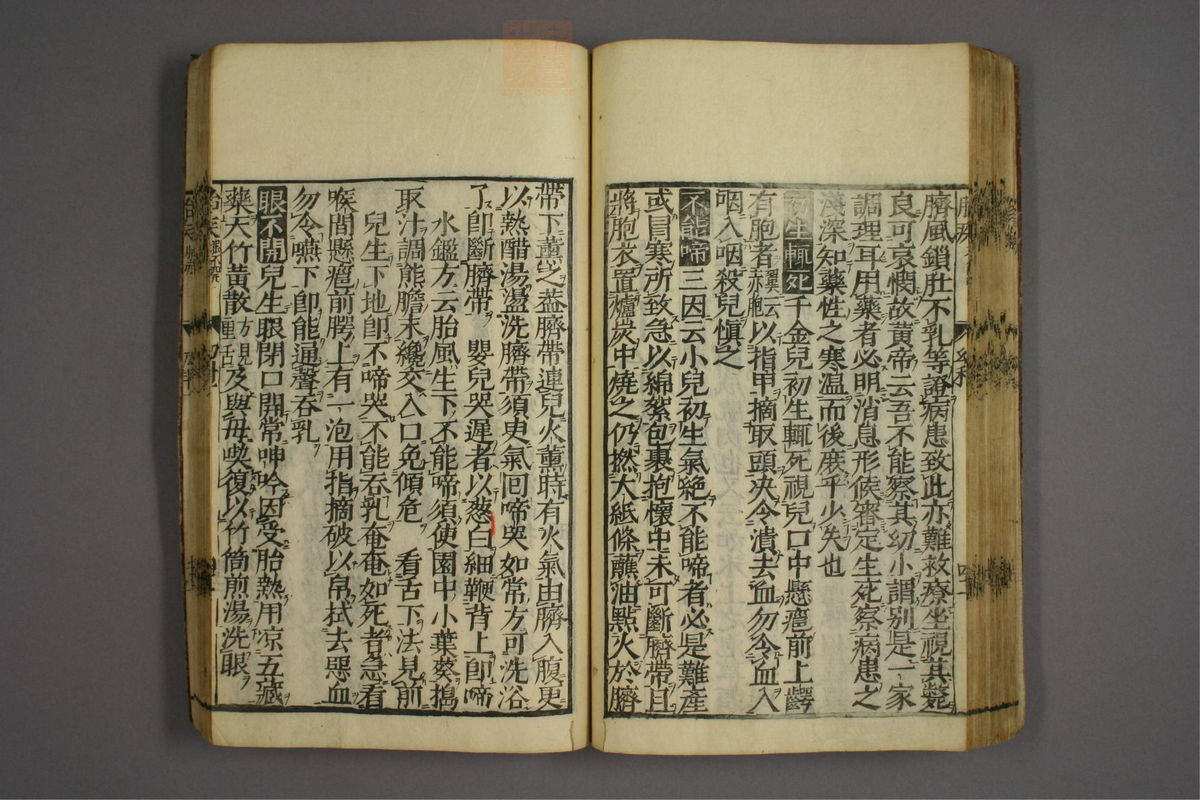 臍風鎖肚不乳等證病患致此亦難救療坐視其斃
良可哀憫故黃帝云吾不能察其幼小謂別是一家
調理耳用藥者必明消息形候審定生死察病患之
淺深知藥性之寒温而後庻乎少失也
初生輒死千金兒初生輒死視兒口中懸癰前上齶
有胞者以指甲摘取頭決令潰去血勿令血入
咽入咽殺兒慎之
不能啼三因云小兒初生氣絶不能啼者必是難產
或冒寒所致急以綿絮包裹抱懷中未可斷臍帶且
將胞衣置爐炭中燒之仍撚大紙條蘸油點火於臍
帶下薰之葢臍帶連兒火薰時有火氣由臍入腹更
以熱醋湯盪洗臍帶須臾氣回啼哭如常方可洗浴
了卽斷臍帶 嬰兒哭遲者以葱白細鞭背上卽啼
水鑑方云胎風生下不能啼須使園中小葉葵搗
取汁調熊膽末纔交入口免傾危 看舌下法見前
兒生下地卽不啼哭不能吞乳奄奄如死者急看
喉間懸癰前腭上有一泡用指摘破以帛拭去惡血
勿令嚥下卽能通聲吞乳
眼不開兒生眼閉口開常呻吟因受胎熱用凉五藏
藥天竹黃散及與母喫復以竹筒煎湯洗眼